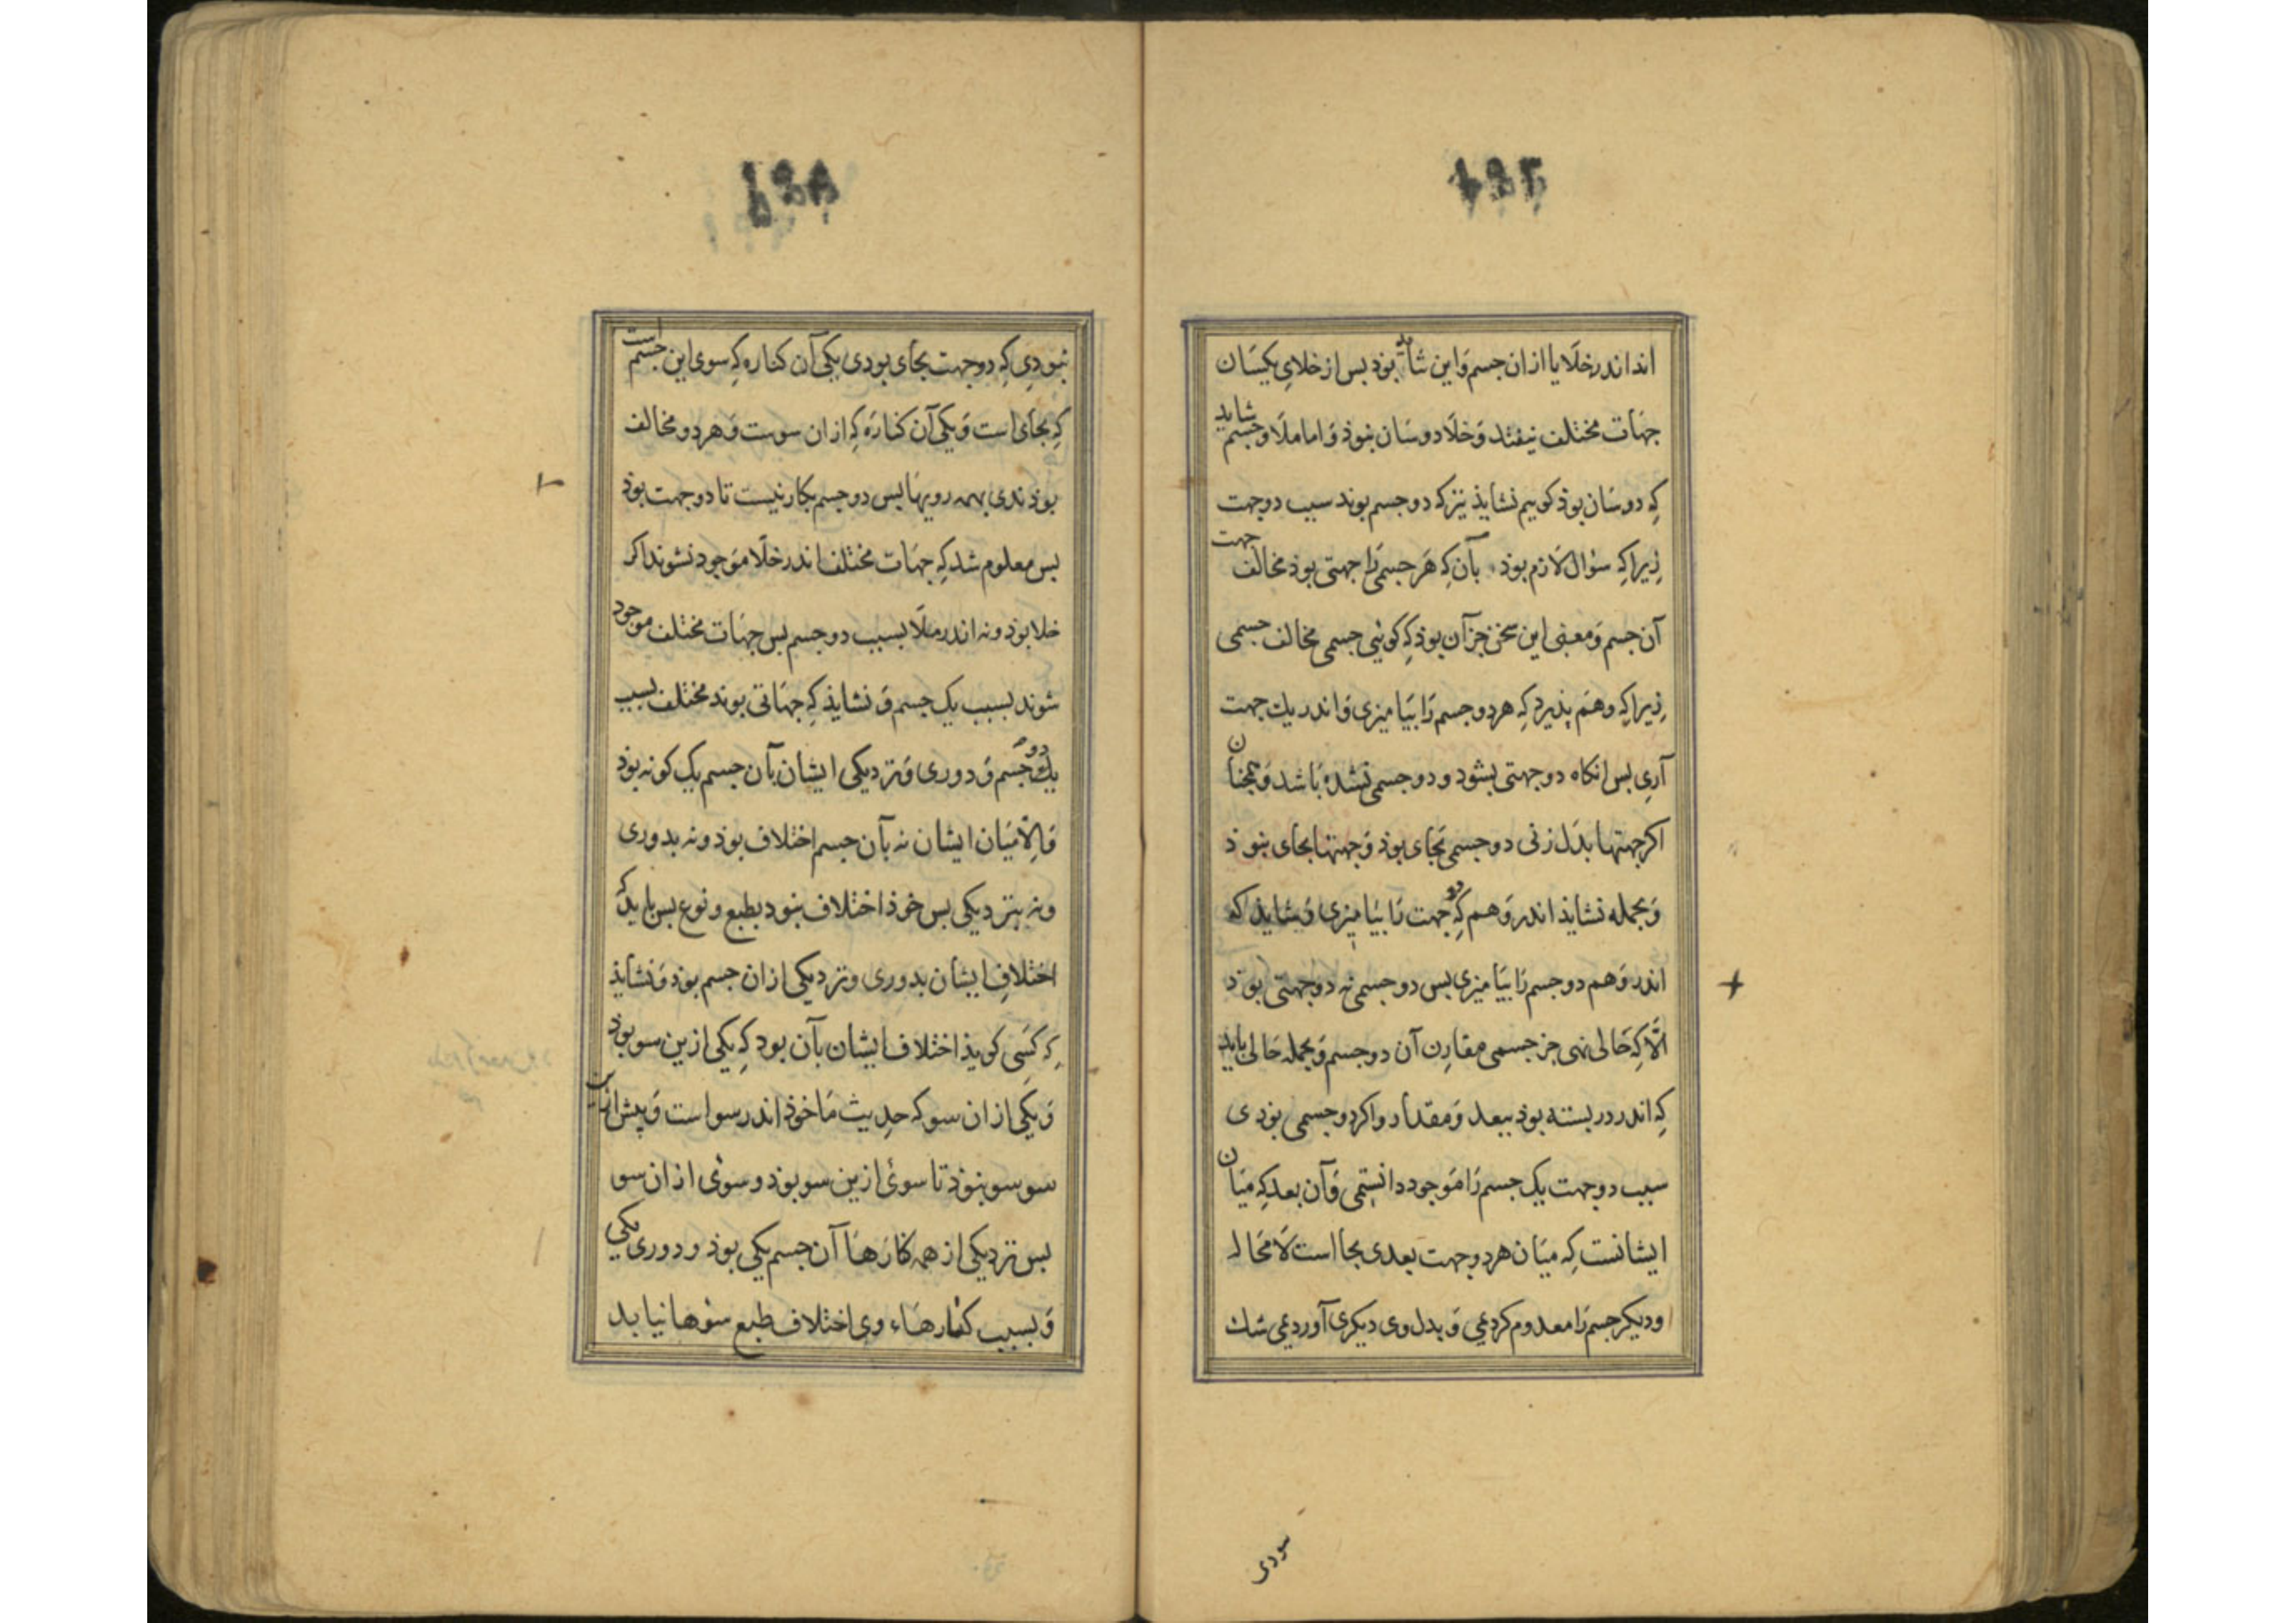 اند اندر خلا یا از ان جسم و این شاید بوذ بس از خلای یکسان
جهات مختلف نیفتد و خلا دو سان نبوذ و اما ملا و جسم شاید
که دو سان بوذ کوییم نشایذ نیز که دو جسم بوند سبب دو جهت
زیرا که سؤال لازم بوذ بآن که هر جسمی را جهتی بوذ مخالف جهت
آن جسم و معنی این سخن جز آن بوذ که کوئی جسمی مخالف جسمی
زیرا که وهم پذیرد که هر دو جسم را بیامیزی و اندر یك جهت
آری بس انکاه دو جهتی بشود و دو جسمی نشده باشد و همجنان
اکر جهتها بدل زنی دو جسمی بجای بوذ و جهتها بجای نبوذ
و بجمله نشایذ اندر وهم که دو جهت را بیامیزی و شایذ که
اندر وهم دو جسم را بیامیزی بس دو جسمی نه دو جهتی بوذ
الا که حالی نهی جز جسمی مقارن آن دو جسم و بجمله حالی باید
که اندر در بسته بوذ ببعد و مقدار و اکر دو جسمی بوذی
سبب دو جهت یک جسم را موجود دانستمی و آن بعد که میان
ایشانست که میان هر دو جهت بعدی بجا است لا محاله
و دیکر جسم را معدوم کردمی و بدل وی دیکری آوردمی شك
سودی
نبودی که دو جهت بجای بودی یکی آن کناره که سوی این جسم است
که بجای است و یکی آن کناره که از ان سوست و هر دو مخالف
بوذندی بهمه رویها بس دو جسم بکار نیست تا دو جهت بوذ
بس معلوم شد که جهات مختلف اندر خلا موجود نشوند اکر
خلا بوذ و نه اندر ملا بسبب دو جسم بس جهات مختلف موجود
شوند بسبب یک جسم و نشایذ که جهاتی بوند مختلف بسبب
یك جسم و دوری و نزدیکی ایشان بآن جسم یک کونه بوذ
و الا میان ایشان نه بآن جسم اختلاف بوذ و نه بدوری
و نه بنزدیکی بس خوذ اختلاف نبود بطبع و نوع بس باید که
اختلاف ایشان بدوری و نزدیکی از ان جسم بوذ و نشایذ
که کسی کویذ اختلاف ایشان بآن بود که یکی ازین سو بوذ
و یکی از ان سو که حدیث ما خوذ اندر سو است و پیش ازین
سو سو نبوذ تا سوئی ازین سو بوذ و سوئی از ان سو
بس نزدیکی از همه کنارها آن جسم یکی بوذ و دوری یکی
و بسبب کنارهاء وی اختلاف طبع سوها نیاید